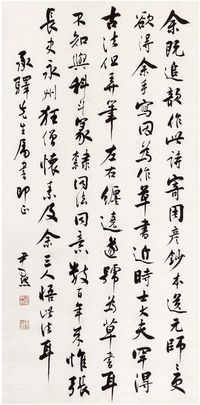 余既追韻作此詩寄周彦鈔本送元師〻更
欲得余手寫因為作草書近時士大夫罕得
古法但弄筆左右纏遶遂號為草書耳
不知與科斗篆隸同法同意數百年來惟張
長史永州狂僧懷素及余三人悟此法耳
先生属書即正 尹默